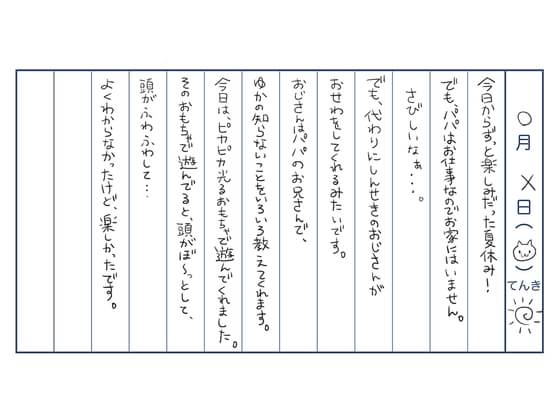 ○月 ×日( )てんき
今日からずっと楽しみだった夏休み!
でも、パパはお仕事なのでお家にはいません。
さびしいなぁ・・・。
でも、代わりにしんせきのおじさんが
おせわをしてくれるみたいです。
おじさんはパパのお兄さんで、
ゆかの知らないことをいろいろ教えてくれます。
今日は、ピカピカ光るおもちゃで遊んでくれました。
そのおもちゃで遊んでると、頭がぼ〜っとして、
頭がふわふわして・・・
よくわからなかったけど、楽しかったです。